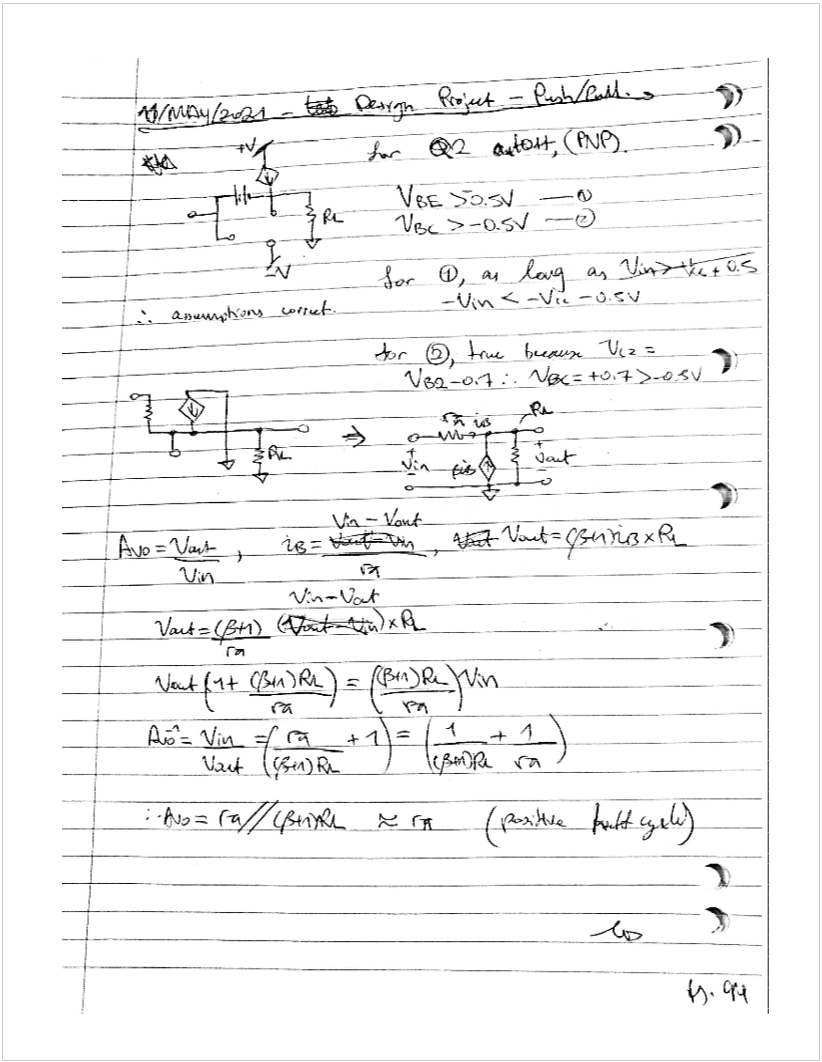 11/MAY/2021 - Design Project - Push/Pull.
+V for Q2 cutoff, (PNP).
VBE > -0.5V — ①
RL VBC > -0.5V — ②
-V
for ①, as long as Vin > Vcc + 0.5
-Vin < -Vcc - 0.5V
∴ assumptions correct.
for ②, true because VC2 =
VB2 - 0.7 ∴ VBC = +0.7 > -0.5V
RL
rπ iB
RL ⇒ + Vin - βiB + Vout -
Avo = Vout/Vin , iB = (Vin - Vout)/rπ , Vout = (β+1)iB × RL
Vout = (β+1)/rπ (Vin - Vout) × RL
Vout (1 + (β+1)RL/rπ) = ((β+1)RL/rπ) Vin
Avo⁻¹ = Vin/Vout = (rπ/(β+1)RL + 1) = (1/(β+1)RL + 1/rπ)
∴ Avo = rπ // (β+1)RL ≈ rπ (positive half cycle)